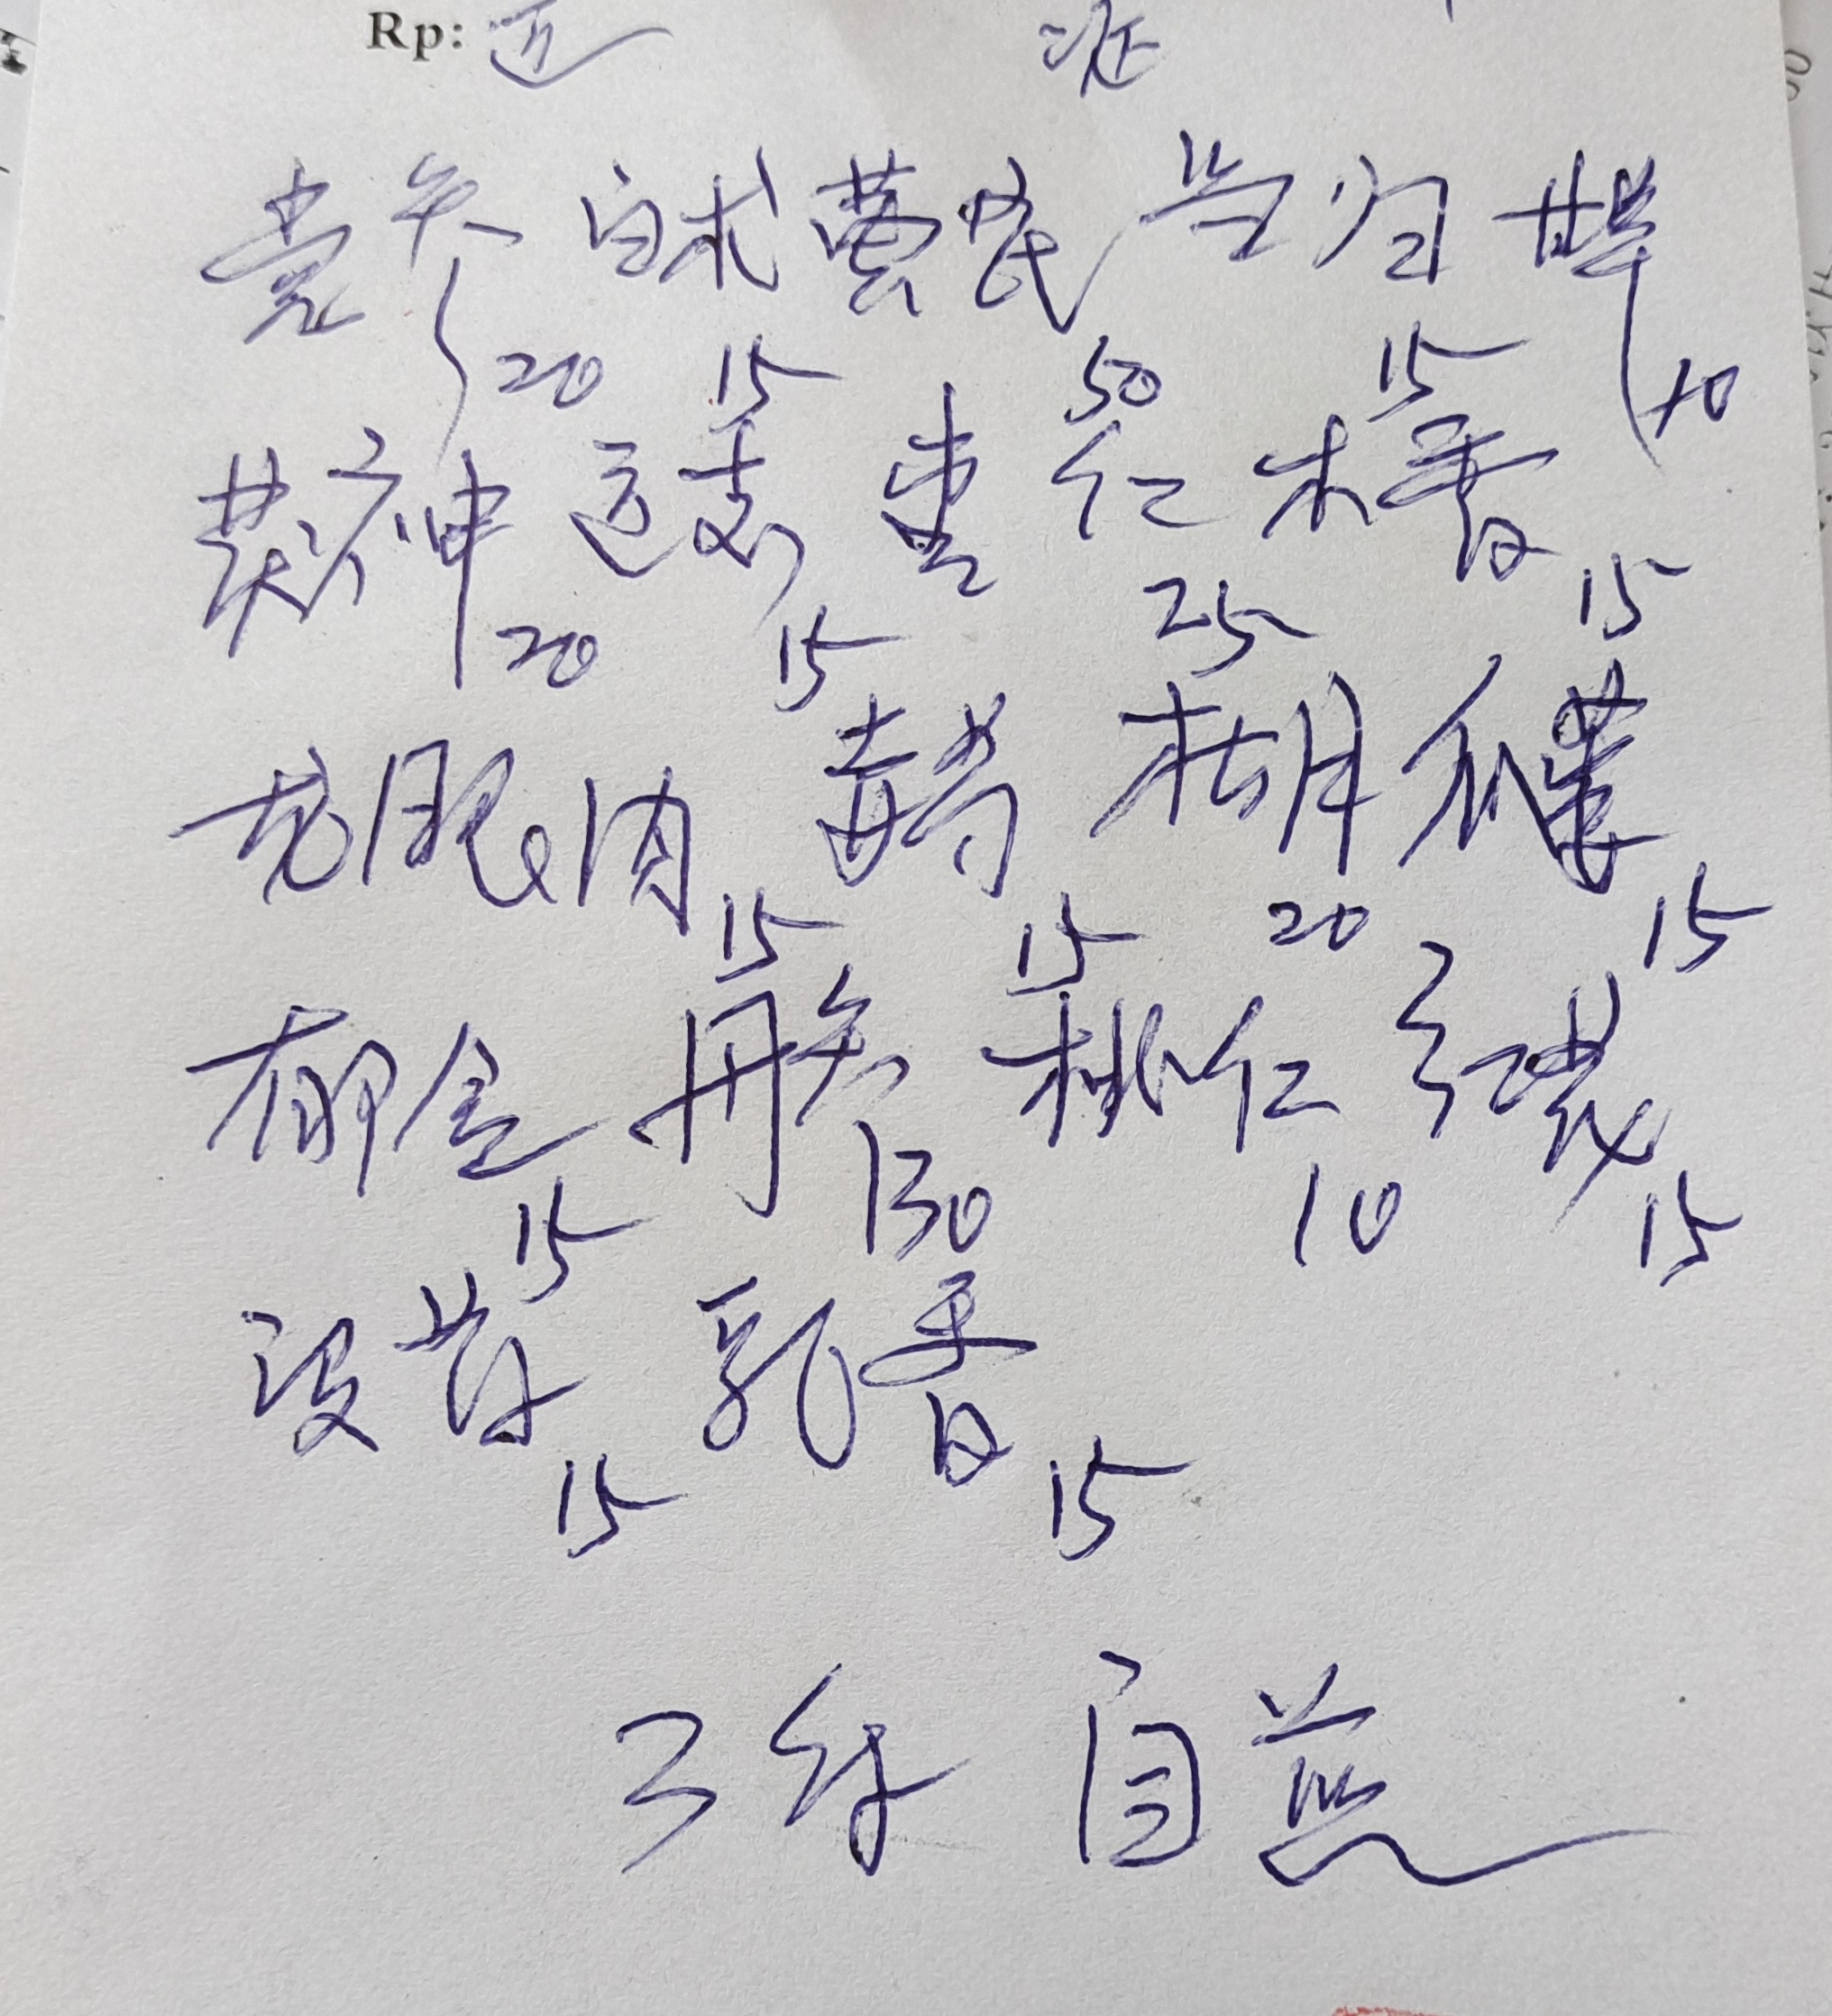 Rp:
党参 白术 黄芪 当归 甘草
20 15 50 15 10
茯神 远志 枣仁 木香
20 15 25 15
龙眼肉 青蒿 柴胡
15 15 20 15
郁金 丹参 桃仁 红花
15 130 10 15
没药 乳香
15 15
3付 自煎